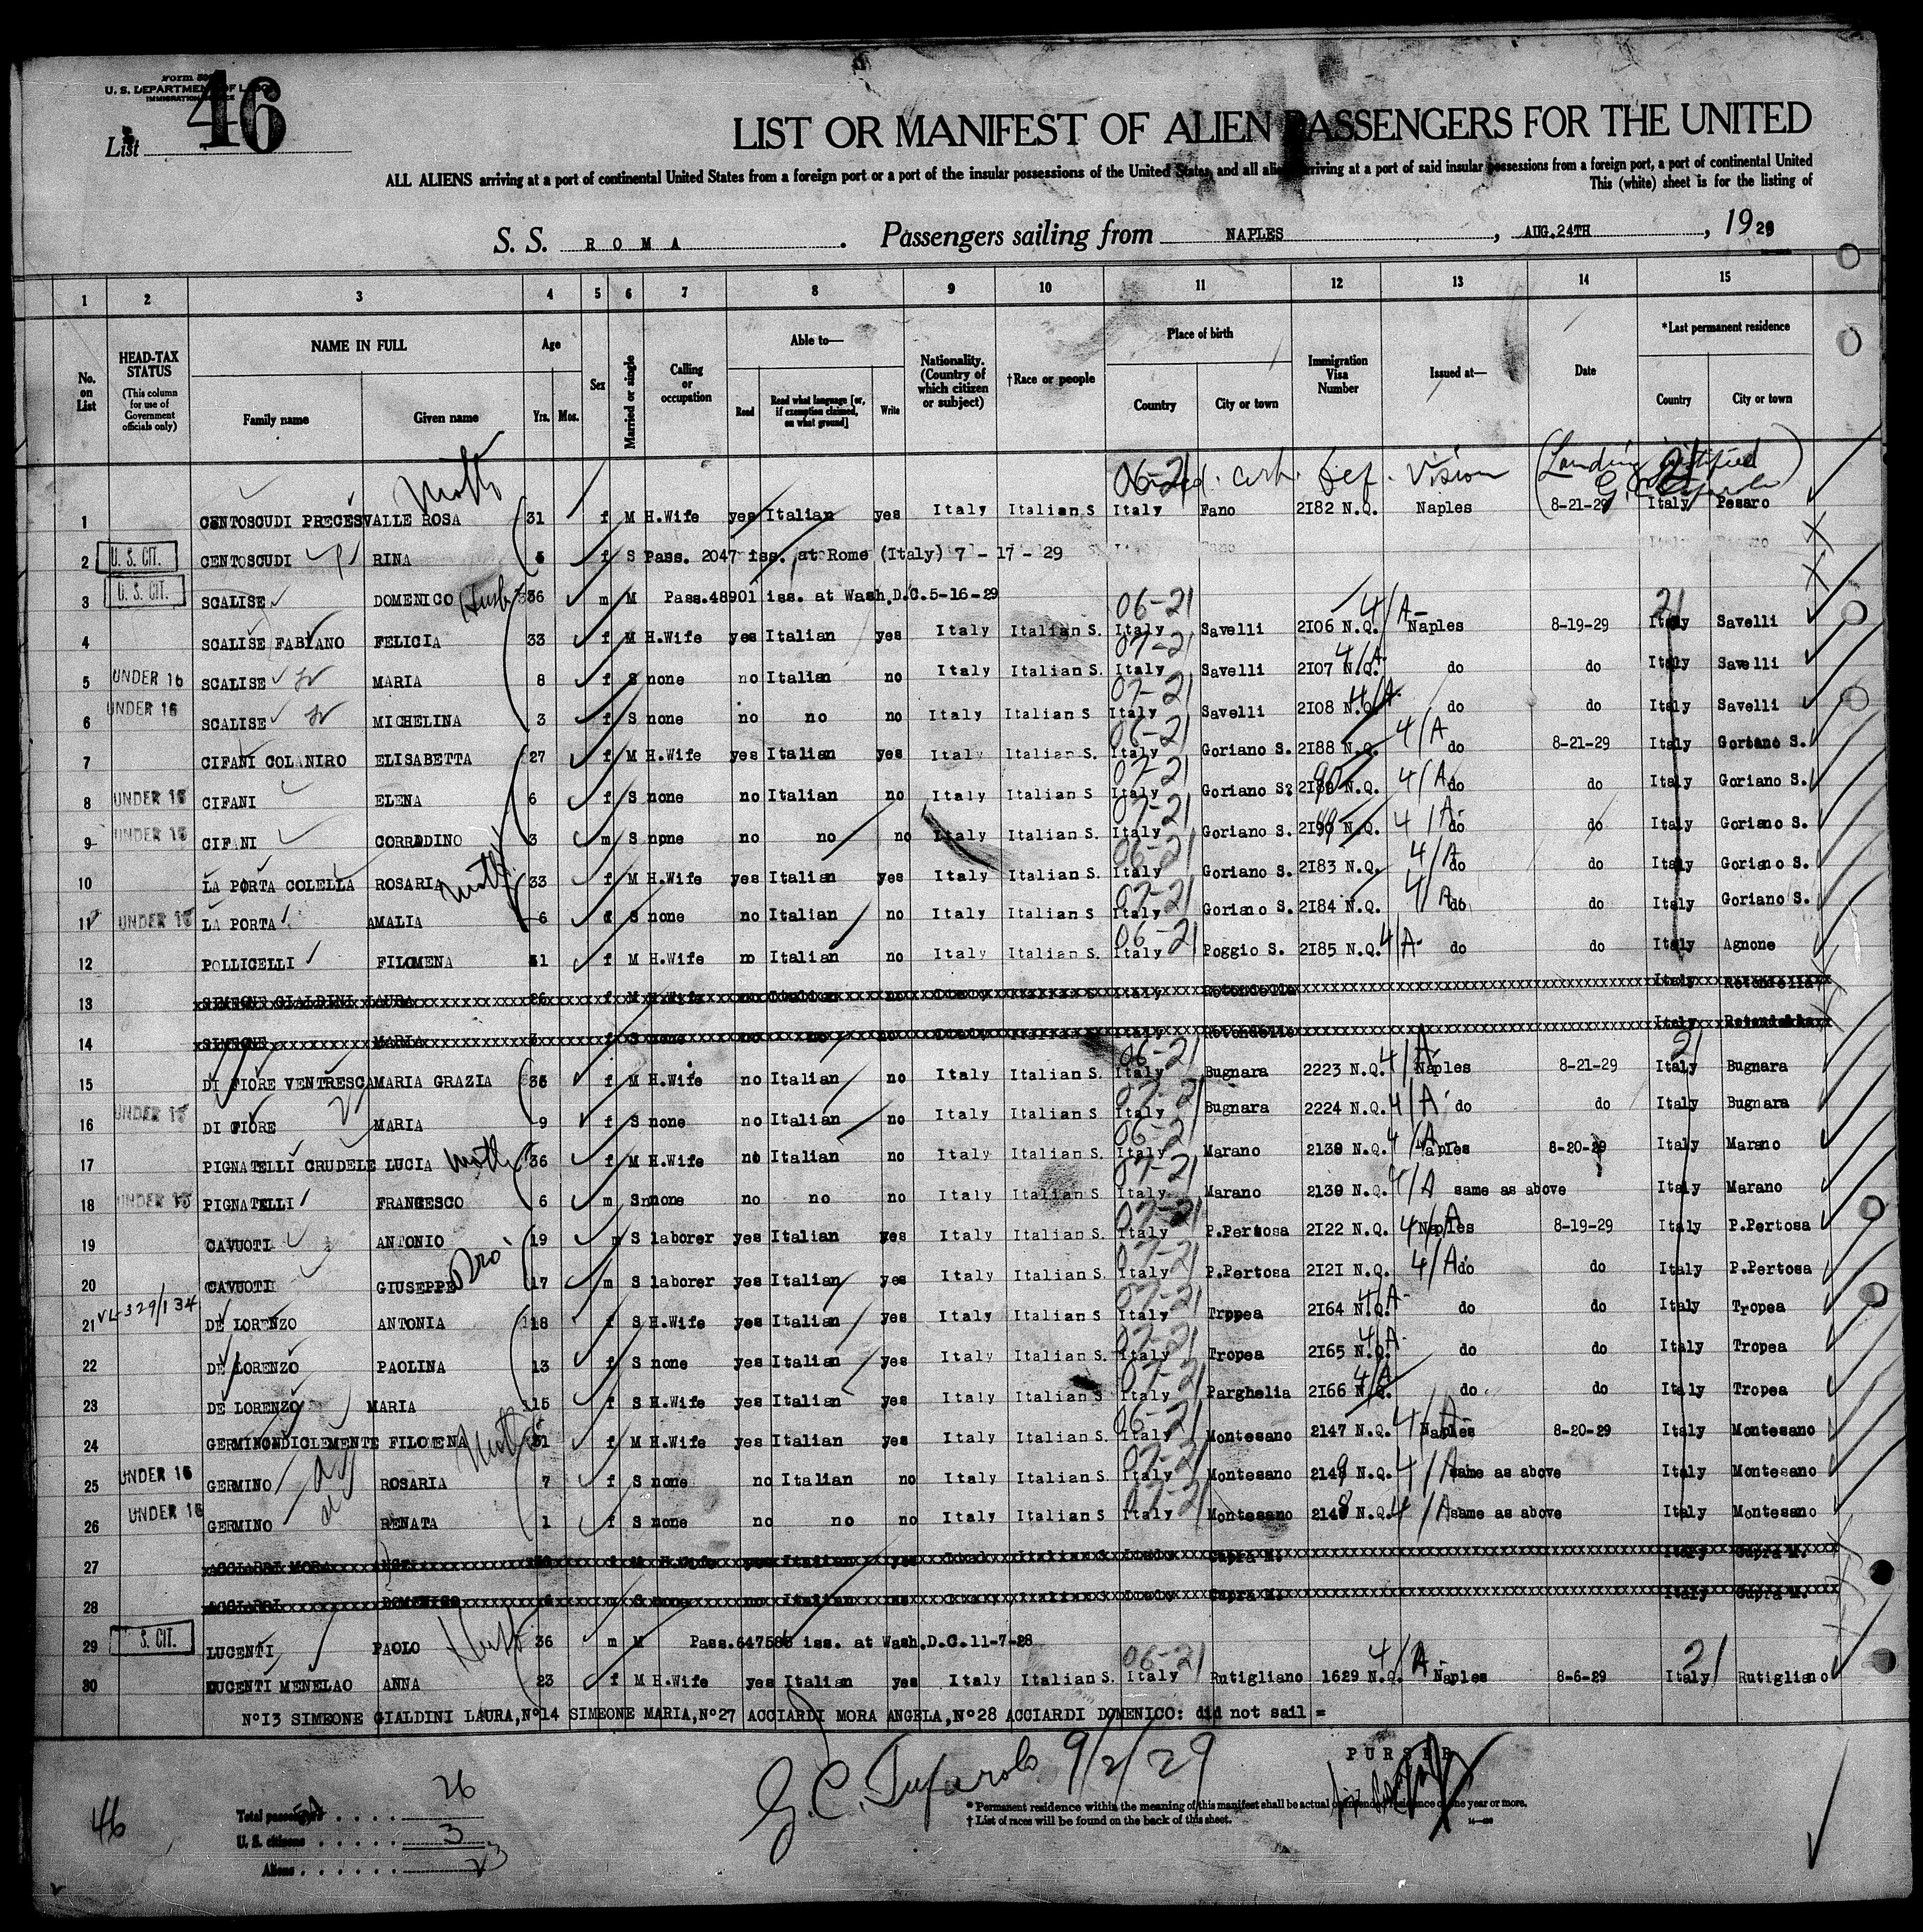 Form 500
U. S. DEPARTMENT OF LABOR
IMMIGRATION SERVICE
List 46
LIST OR MANIFEST OF ALIEN PASSENGERS FOR THE UNITED
ALL ALIENS arriving at a port of continental United States from a foreign port or a port of the insular possessions of the United States, and all aliens arriving at a port of said insular possessions from a foreign port, a port of continental United
This (white) sheet is for the listing of
S. S. ROMA. Passengers sailing from NAPLES, AUG.24TH, 1929
1 2 3 4 5 6 7 8 9 10 11 12 13 14 15
No. on List
HEAD-TAX STATUS (This column for use of Government officials only)
NAME IN FULL Family name Given name
Age Yrs. Mos.
Sex
Married or single
Calling or occupation
Able to— Read Read what language [or, if exemption claimed, on what ground] Write
Nationality. (Country of which citizen or subject)
†Race or people
Place of birth Country City or town
Immigration Visa Number
Issued at—
Date
*Last permanent residence Country City or town
Moth 06-21 def. vision (Landing 21
1 CENTOSCUDI PRECESVALLE ROSA 31 f M H.Wife yes Italian yes Italy Italian S Italy Fano 2182 N.Q. Naples 8-21-29 Italy Pesaro
2 U. S. CIT. CENTOSCUDI RINA f S Pass. 2047 iss. at Rome (Italy) 7 - 17 - 29
3 U. S. CIT. SCALISE DOMENICO Husb 36 m M Pass.48901 iss. at Wash.D.C.5-16-29
4 SCALISE FABIANO FELICIA 33 f M H.Wife yes Italian yes Italy Italian S. 06-21 Italy Savelli 2106 N.Q. 4/A- Naples 8-19-29 21 Italy Savelli
5 UNDER 16 SCALISE MARIA 8 f S none no Italian no Italy Italian S. 07-21 Italy Savelli 2107 N.Q. 4/A- do do Italy Savelli
6 UNDER 16 SCALISE MICHELINA 3 f S none no no no Italy Italian S 07-21 Italy Savelli 2108 N.Q. 4/A- do do Italy Savelli
7 CIFANI COLANIRO ELISABETTA 27 f M H.Wife yes Italian yes Italy Italian S. 06-21 Italy Goriano S. 2188 N.Q. 4/A do 8-21-29 Italy Goriano S.
8 UNDER 16 CIFANI ELENA 6 f S none no Italian no Italy Italian S 07-21 Italy Goriano S. N.Q. 4/A do do Italy Goriano S.
9 UNDER 16 CIFANI CORRADINO 3 m S none no no no Italy Italian S. 07-21 Italy Goriano S. N.Q. 4/A- do do Italy Goriano S.
10 LA PORTA COLELLA ROSARIA Moth 33 f M H.Wife yes Italian yes Italy Italian S. 06-21 Italy Goriano S. 2183 N.Q. 4/A do do Italy Goriano S.
11 UNDER 16 LA PORTA AMALIA 6 f S none no Italian no Italy Italian S 07-21 Italy Goriano S. 2184 N.Q. 4/A do do Italy Goriano S.
12 POLLICELLI FILOMENA f M H.Wife no Italian no Italy Italian S. 06-21 Italy Poggio S. 2185 N.Q. 4/A- do do Italy Agnone
13 SIMEONE GIALDINI LAURA 26 f M H.Wife no Italian no Italy Italian S Italy Rotondella Italy Rotondella
14 SIMEONE MARIA f S none no no no Italy Italian S Italy Rotondella Italy Rotondella
15 DI FIORE VENTRESCA MARIA GRAZIA f M H.Wife no Italian no Italy Italian S. 06-21 Italy Bugnara 2223 N.Q. 4/A Naples 8-21-29 21 Italy Bugnara
16 UNDER 16 DI FIORE MARIA 9 f S none no Italian no Italy Italian S 07-21 Italy Bugnara 2224 N.Q. 4/A- do do Italy Bugnara
17 PIGNATELLI CRUDELE LUCIA Moth 36 f M H.Wife no Italian no Italy Italian S. 06-21 Italy Marano N.Q. 4/A Naples 8-20-29 Italy Marano
18 UNDER 16 PIGNATELLI FRANCESCO 6 m S none no no no Italy Italian S 07-21 Italy Marano N.Q. 4/A same as above Italy Marano
19 CAVUOTI ANTONIO 19 m S laborer yes Italian yes Italy Italian S. 07-21 Italy P.Pertosa 2122 N.Q. 4/A Naples 8-19-29 Italy P.Pertosa
20 CAVUOTI GIUSEPPE Bro. 17 m S laborer yes Italian yes Italy Italian S. 07-21 Italy P.Pertosa 2121 N.Q. 4/A do do Italy P.Pertosa
21 VL-329/134 DE LORENZO ANTONIA 18 f S H.Wife yes Italian yes Italy Italian S 07-21 Italy Tropea 2164 N.Q. 4/A- do do Italy Tropea
22 DE LORENZO PAOLINA 13 f S none yes Italian yes Italy Italian S. 07-21 Italy Tropea 2165 N.Q. 4/A- do do Italy Tropea
23 DE LORENZO MARIA 15 f S H.Wife yes Italian yes Italy Italian S 07-21 Italy Parghelia 2166 N.Q. 4/A do do Italy Tropea
24 GERMINO DICLEMENTE FILOMENA Moth 31 f M H.Wife yes Italian yes Italy Italian S. 06-21 Italy Montesano 2147 N.Q. 4/A- Naples 8-20-29 Italy Montesano
25 UNDER 16 GERMINO ROSARIA 7 f S none no Italian no Italy Italian S. 07-21 Italy Montesano 2149 N.Q. 4/A same as above Italy Montesano
26 UNDER 16 GERMINO RENATA 1 f S none no no no Italy Italian S 07-21 Italy Montesano 2148 N.Q. 4/A same as above Italy Montesano
27 ACCIARDI MORA f M H.Wife yes Italian yes Italy Italian S Italy Cupra M. Italy Cupra M.
28 ACCIARDI DOMENICO m S none no Italian no Italy Italian S Italy Cupra M. Italy Cupra M.
29 S. CIT. LUCENTI PAOLO Husb 36 m M iss. at Wash.D.C.11-7-28
30 LUCENTI MENELAO ANNA 23 f M H.Wife yes Italian yes Italy Italian S. 06-21 Italy Rutigliano 1629 N.Q. 4/A- Naples 8-6-29 21 Italy Rutigliano
N°13 SIMEONE GIALDINI LAURA,N°14 SIMEONE MARIA,N°27 ACCIARDI MORA ANGELA,N°28 ACCIARDI DOMENICO: did not sail =
PURSER
G. C. Tufarolo 9/2/29
46
Total passengers . . . . 26
U. S. citizens . . . . . 3
Aliens . . . . . . 23
* Permanent residence within the meaning of this manifest shall be actual or intended residence of one year or more.
† List of races will be found on the back of this sheet.